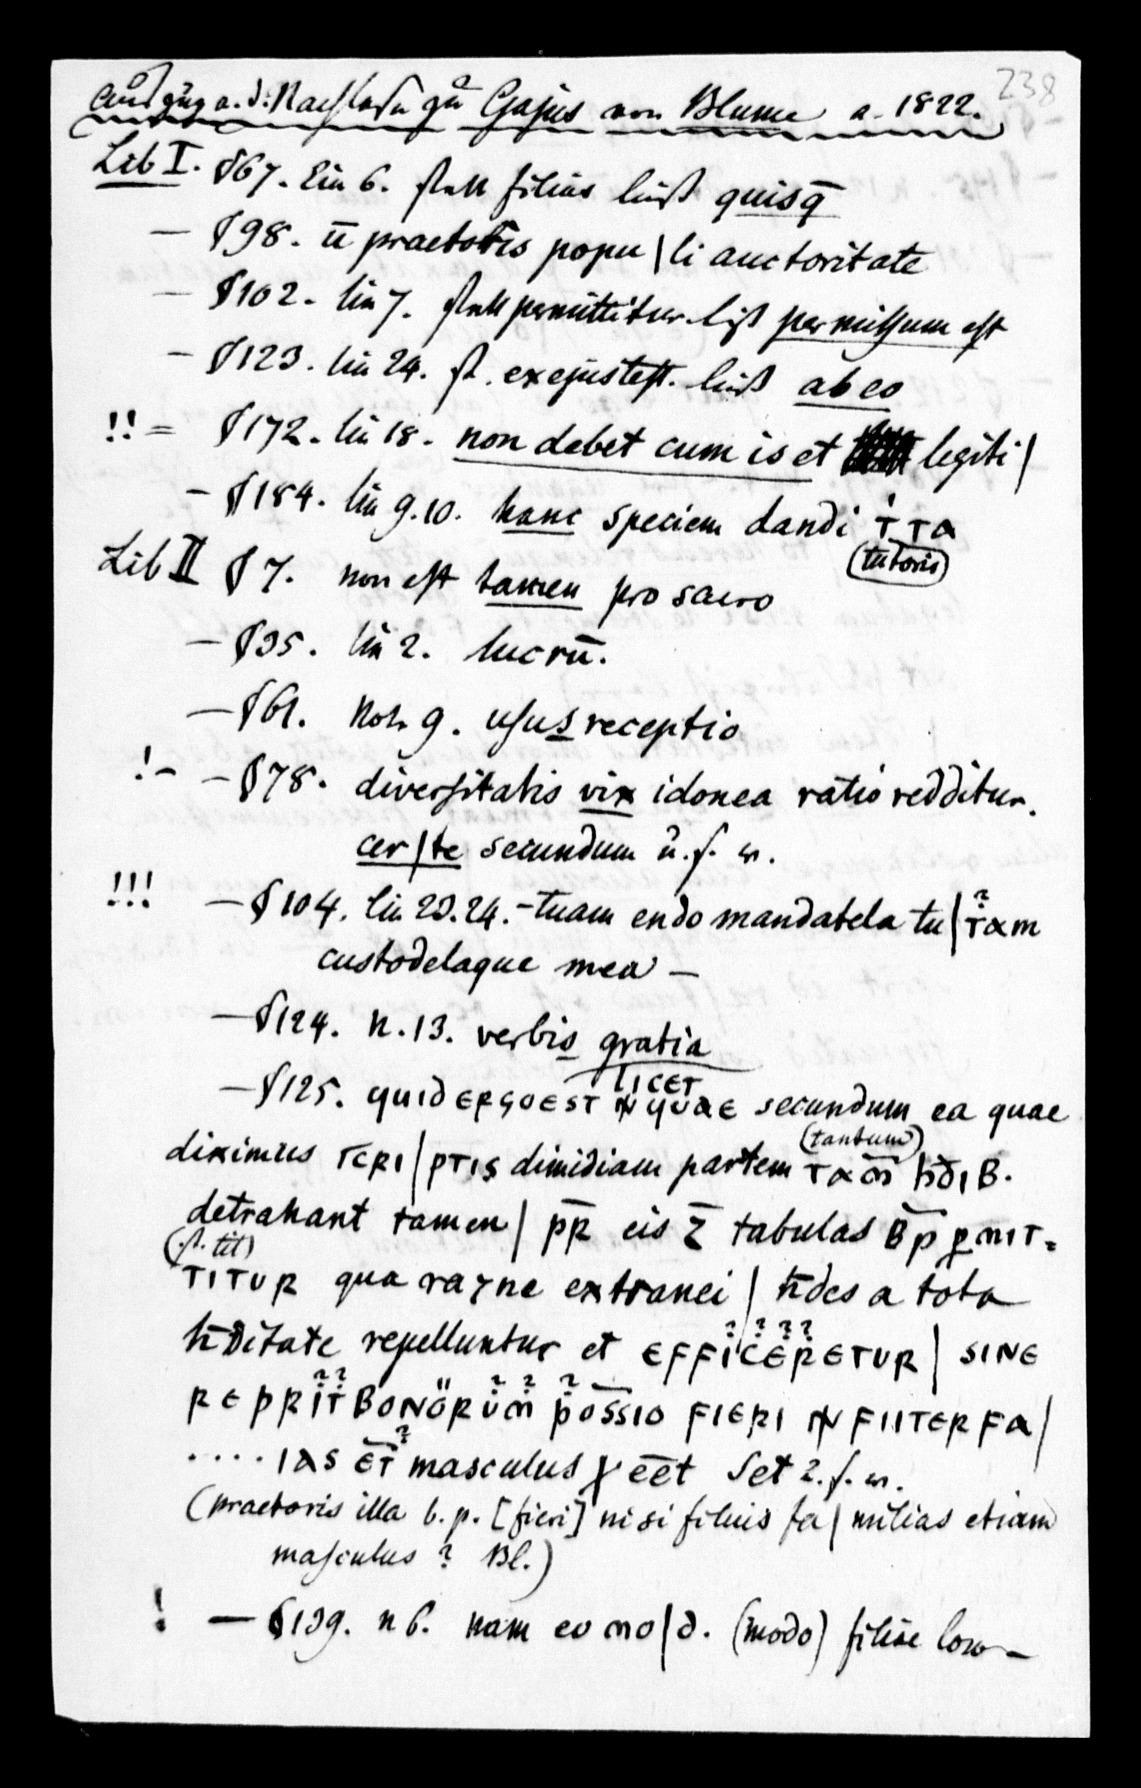 238
Auszug a. d. Nachlesen zu Gajus von Blume a. 1822.
Lib I. §67. lin 6. statt filius ließ quisq̄
— §98. ū praetoris popu | li auctoritate
— §102. lin 7. statt permittitur ließ permissum est
— §123. lin 24. st. exejustest. ließ ab eo
!! = §172. lin 18. non debet cum is et legiti |
— §184. lin 9.10. hanc speciem dandi TTα
(tutoris)
Lib II § 7. non est tamen pro sacro
— §35. lin 2. lucrū.
— §61. Not. 9. usus receptio
! - — §78. diversitatis vix idonea ratio redditur.
cer | te secundum u. s. w.
!!! — §104. lin 23.24. - tuam endo mandatela tu | Tαm
custodelaque mea —
— §124. n. 13. verbis gratia
LICET
— §125. quid ERGO EST N QUAE secundum ea quae
(tantum)
diximus TCRI | PTIS dimidiam partem TαM h̄dIB.
detrahant tamen | p̄R eis Z̄ tabulas B̄p pmIT=
(st. tit)
TITUR qua raTne extranei | h̄des a tota
h̄ditate repelluntur et EFFICERETUR | SINE
REPRIT BONORUM POSSIO FIERI N FIITERFα |
.... IAS ET masculus ēēt Set u. s. w.
(praetoris illa b. p. [fieri] nisi filius fa | milias etiam
masculus ? Bl.)
! — §139. n 6. nam eo mo | d. (modo) filiae loco —